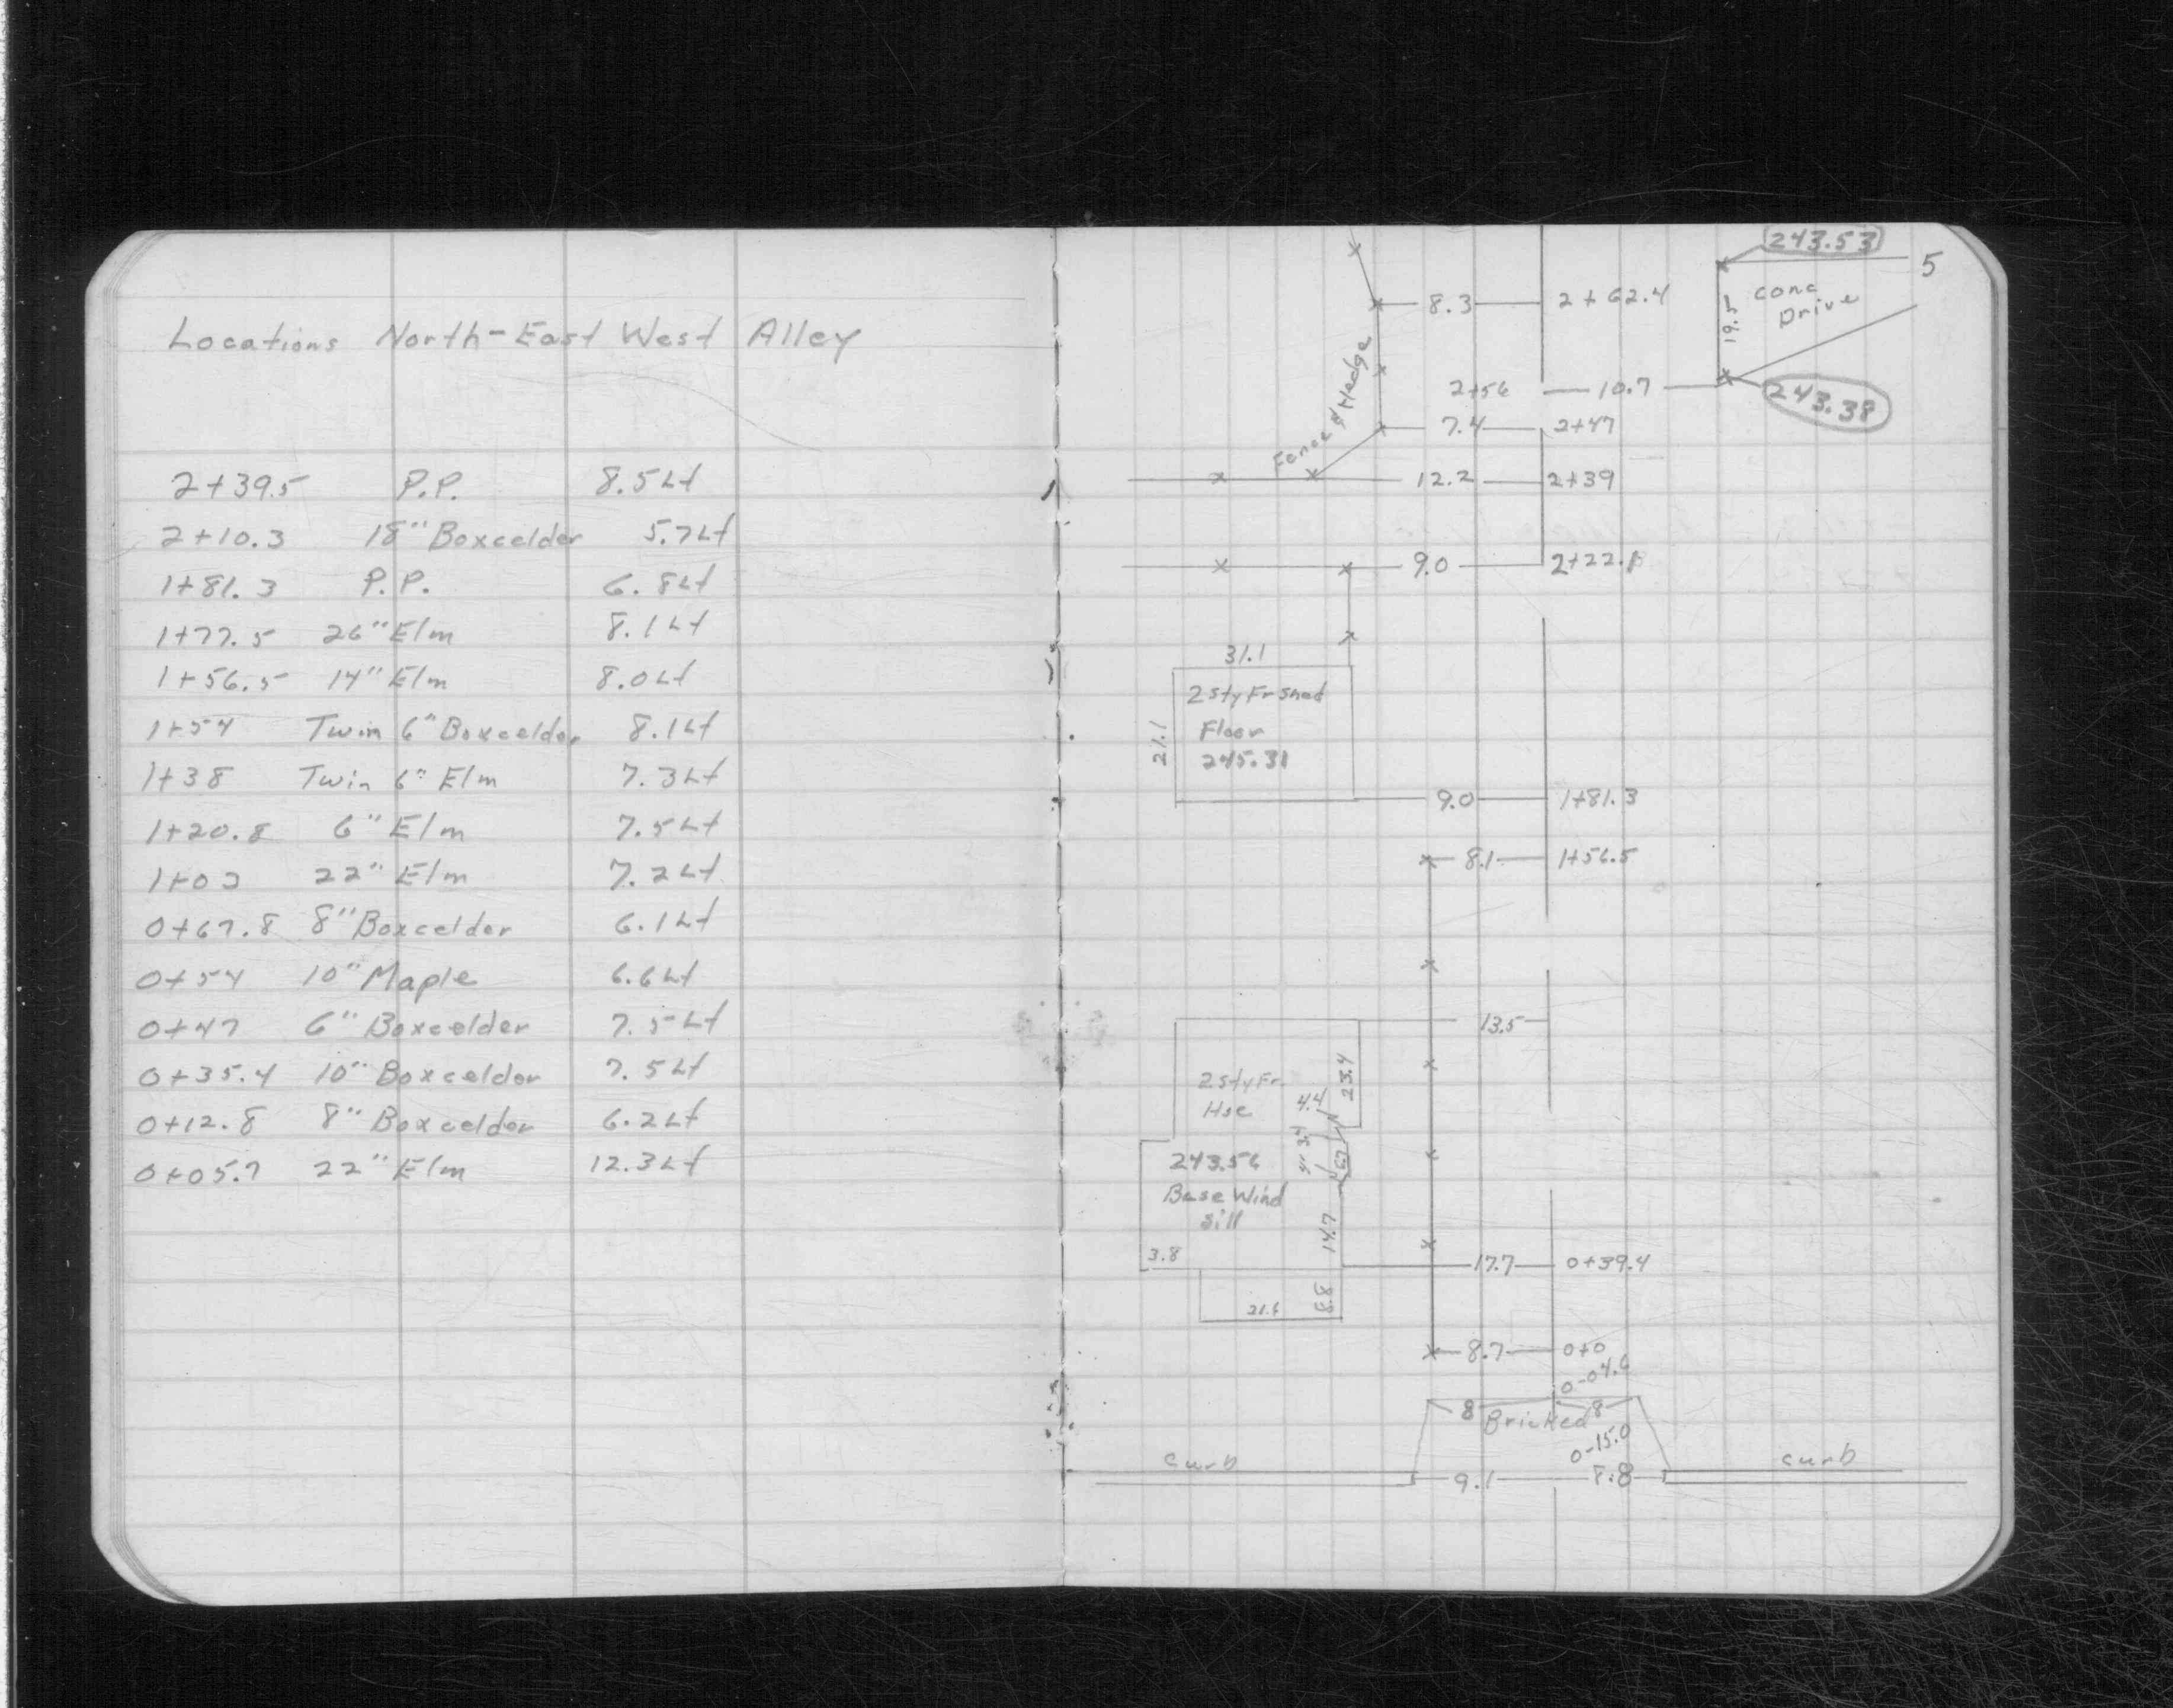 Locations North-East West Alley
2+39.5 P.P. 8.5Lt
2+10.3 18" Boxcelder 5.7Lt
1+81.3 P.P. 6.8Lt
1+77.5 26" Elm 8.1Lt
1+56.5 14" Elm 8.0Lt
1+54 Twin 6" Boxcelder 8.1Lt
1+38 Twin 6" Elm 7.3Lt
1+20.8 6" Elm 7.5Lt
1+03 22" Elm 7.2Lt
0+67.8 8" Boxcelder 6.1Lt
0+54 10" Maple 6.6Lt
0+47 6" Boxcelder 7.5Lt
0+35.4 10" Boxcelder 7.5Lt
0+12.8 8" Boxcelder 6.2Lt
0+05.7 22" Elm 12.3Lt
243.53
5
8.3 2+62.4
19.5
Conc
Drive
Fence & Hedge
2+56 10.7
243.38
7.4 2+47
12.2 2+39
9.0 2+22.
31.1
21.1
2 sty Fr Shed
Floor
245.31
9.0 1+81.3
8.1 1+56.5
13.5
2 sty Fr.
Hse
4.4
23.4
243.56
Base Wind
Sill
14.7
3.8
17.7 0+39.4
21.6
8.8
8.7 0+0
0-04.6
8 Bricked 8
0-15.0
curb
9.1 8.8
curb